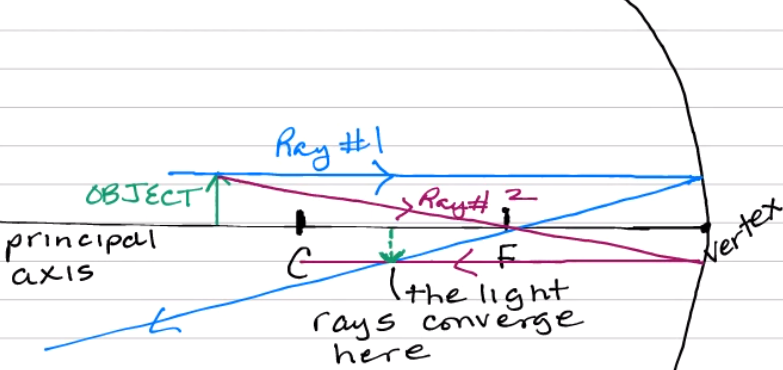 Ray #1
OBJECT
Ray # 2
principal
axis
C
F
vertex
the light
rays converge
here